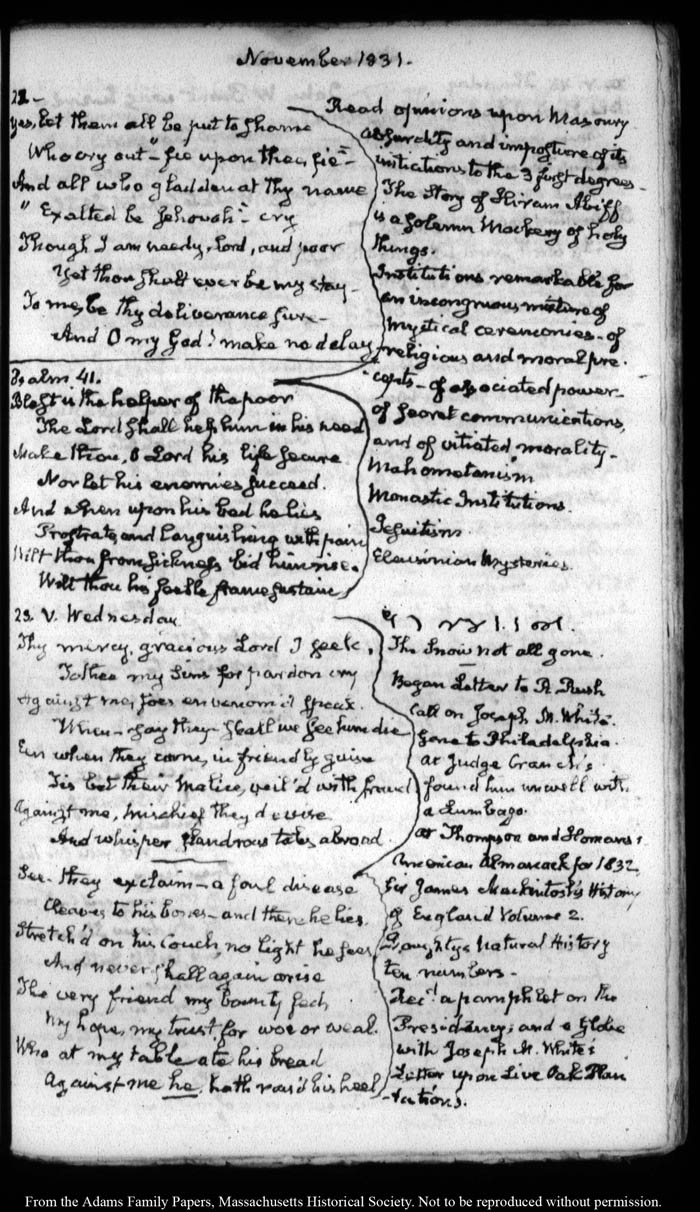 November 1831.
22 -
Yes, let them all be put to shame
Who cry out - "fie upon thee, fie" -
And all who gladden at thy name
"Exalted be Jehovah" - cry
Though I am needy, lord, and poor
Yet thou shalt ever be my stay -
To me, be thy deliverance sure -
And O my God! make no delay
Psalm 41.
Blest is the helper of the poor
The Lord shall help him in his need
Make thou, O Lord his life secure
Nor let his enemies succeed.
And when upon his bed he lies
Prostrate, and languishing with pain
Wilt thou from sickness bid him rise.
Wilt thou his feeble frame sustain
23. V. Wednesday
Thy mercy, gracious Lord I seek,
To thee my sins for pardon cry
Against me, foes envenom'd speak.
When - say they - shall we see him die
Even when they come, in friendly guise
Tis but their malice, veil'd with fraud
Against me, mischief they devise
And whisper slandrous tales abroad.
See - they exclaim - a foul disease
Cleaves to his bones - and there he lies
Stretch'd on his couch, no light he sees
And never shall again arise
The very friend my bounty fed,
My hope, my trust, for woe or weal.
Who at my table ate his bread
Against me he hath rais'd his heel
Read opinions upon Masonry
absurdity and imposture of its
initiations to the 3 first degrees -
The Story of Hiram Abiff
is a solemn Mockery of holy
things.
Institutions remarkable for
an incongruous mixture of
mystical ceremonies - of
religious and moral pre-
cepts - of associated power -
of secret communications,
and of vitiated morality -
Mahometanism
Monastic Institutions.
Jesuitism.
Eleusinian Mysteries.
The Snow not all gone.
Began Letter to R Rush
Call on Joseph M. White.
gone to Philadelphia.
at Judge Cranch's
found him unwell with
a Lumbago.
at Thompson and Homans's
American Almanack for 1832.
Sir James Mackintosh's History
of England Volume 2.
Doughty's Natural History
ten numbers -
Rec'd a pamphlet on the
Presidency; and a Globe
with Joseph M. White's
Letter upon Live Oak Plan
-tations.
From the Adams Family Papers, Massachusetts Historical Society. Not to be reproduced without permission.